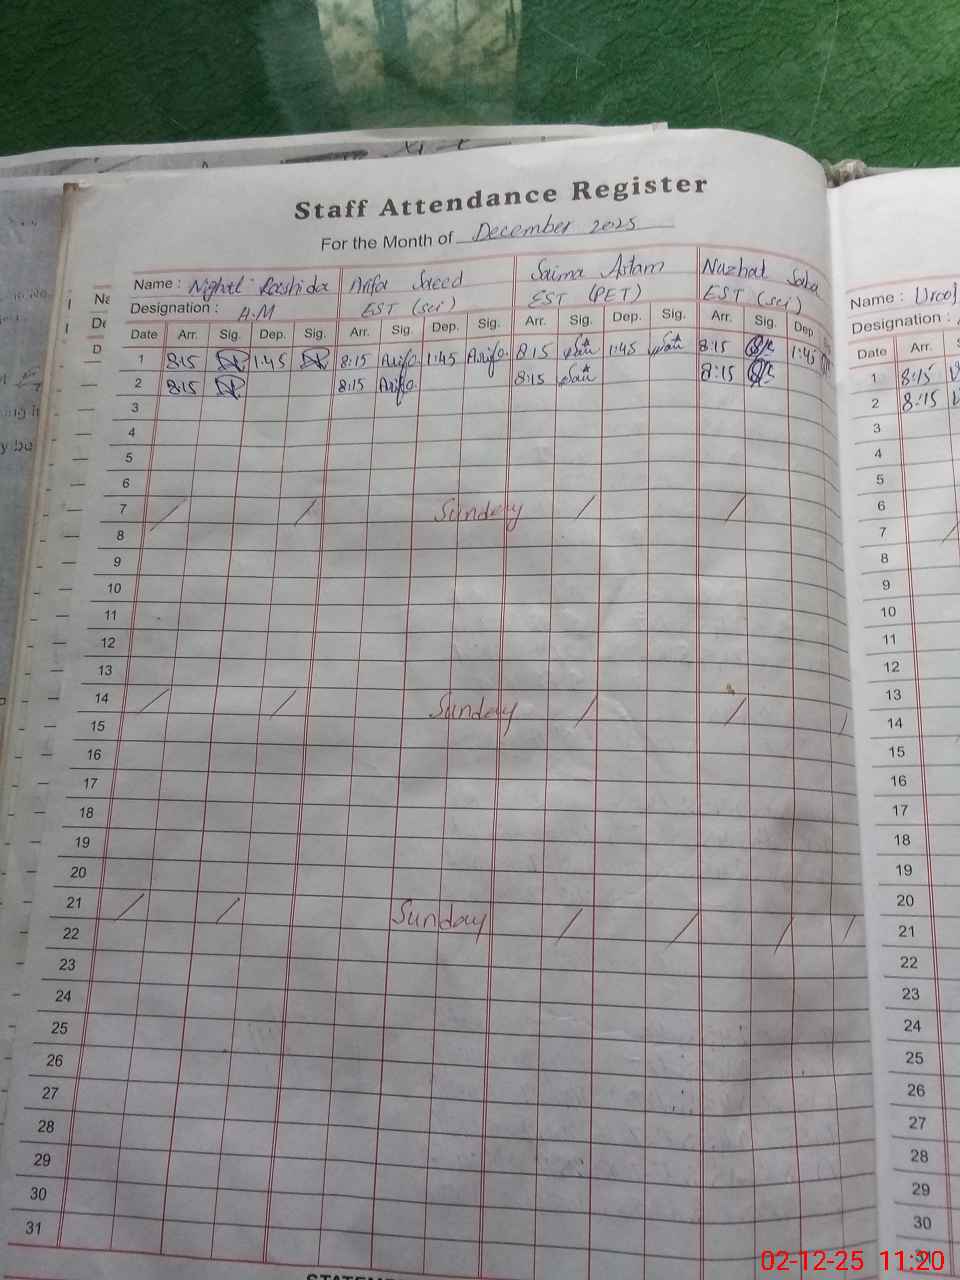 Staff Attendance Register
For the Month of December 2025
Name : Nighat Rashida Arifa Saeed Saima Aslam Nuzhat Saba
Designation : H.M EST (sci) EST (PET) EST (sci)
Date Arr. Sig. Dep. Sig. Arr. Sig. Dep. Sig. Arr. Sig. Dep. Sig. Arr. Sig. Dep
1 8:15 1:45 8:15 Arifa 1:45 Arifa 8:15 1:45 8:15 1:45
2 8:15 8:15 Arifa 8:15 8:15
3
4
5
6
7 Sunday
8
9
10
11
12
13
14 Sunday
15
16
17
18
19
20
21 Sunday
22
23
24
25
26
27
28
29
30
31
Name :
Designation :
Date Arr.
1 8:15
2 8:15
3
4
5
6
7
8
9
10
11
12
13
14
15
16
17
18
19
20
21
22
23
24
25
26
27
28
29
30
02-12-25 11:20